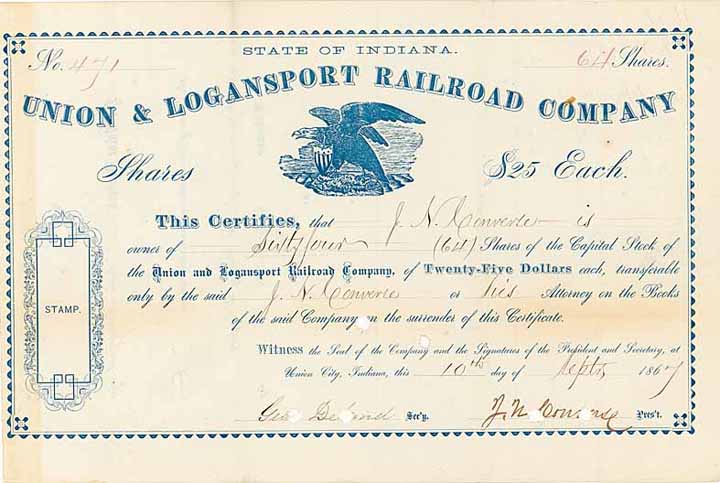 STATE OF INDIANA.
No. 471 64 Shares.
UNION & LOGANSPORT RAILROAD COMPANY
Shares $25 Each.
This Certifies, that J. N. Converse is
owner of Sixty four (64) Shares of the Capital Stock of
the Union and Logansport Railroad Company, of Twenty-Five Dollars each, transferable
only by the said J. N. Converse or his Attorney on the Books
of the said Company on the surrender of this Certificate.
STAMP.
Witness the Seal of the Company and the Signatures of the President and Secretary, at
Union City, Indiana, this 10th day of Sept 1867
Geo Sec'y. J. N. Converse Pres't.